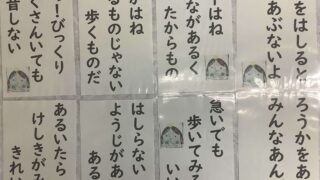 をはしると
あぶないよ
ーはね
ながあるく
たからもの
がはね
るものじゃない
歩くものだ
！びっくり
くさんいても
音しない
ろうかをあ
みんなあん
急いでも
歩いてみ
い
はしらない
ようじがあ
ある
あるいたら
けしきがみ
きれ